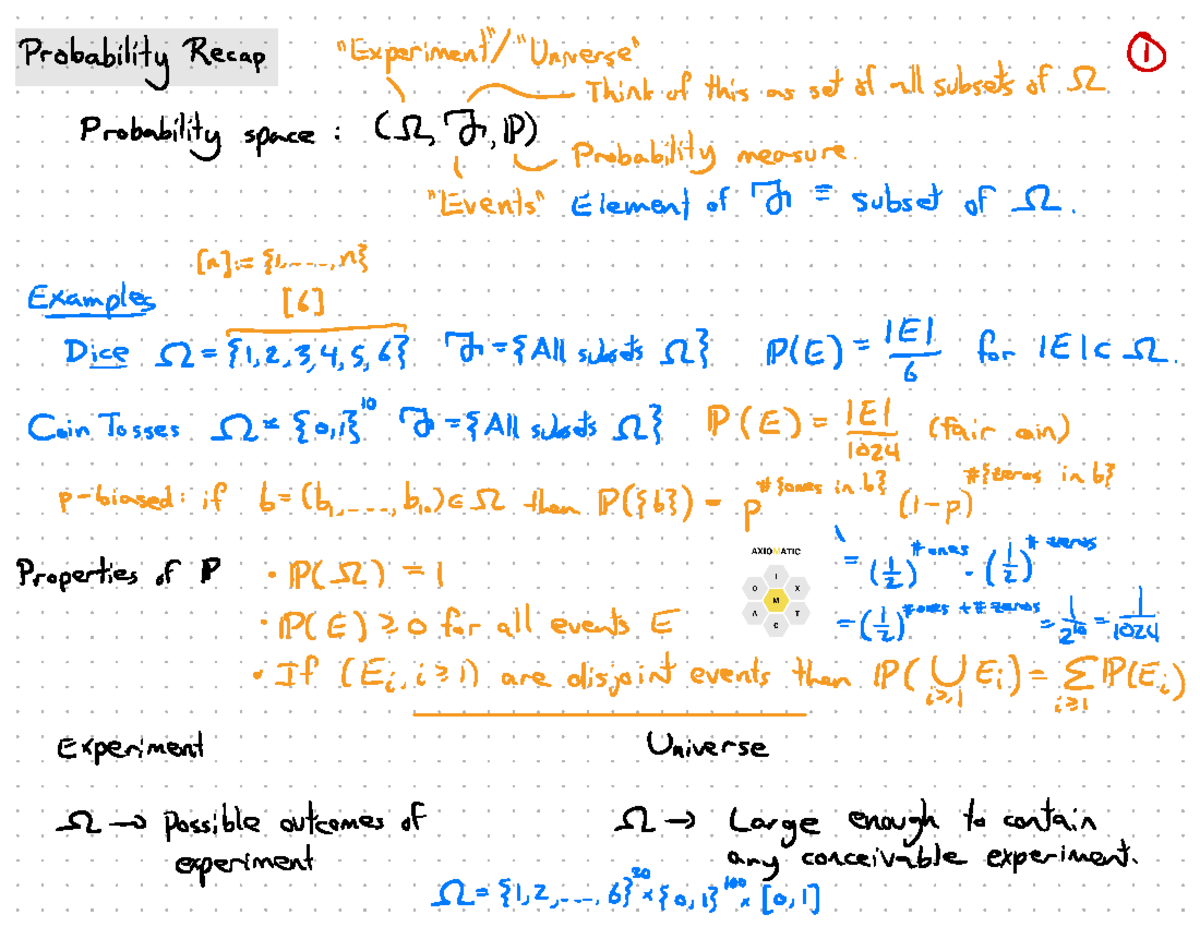 Probability Recap
"Experiment"/"Universe"
①
Think of this as set of all subsets of Ω
Probability space : (Ω, ℱ, ℙ)
Probability measure.
"Events" Element of ℱ ≡ subset of Ω.
[n] := {1,----,n}
Examples
[6]
Dice Ω = {1,2,3,4,5,6} ℱ = {All subsets Ω} ℙ(E) = |E|/6 for |E| ⊂ Ω.
Coin Tosses Ω = {0,1}^10 ℱ = {All subsets Ω} ℙ(E) = |E|/1024 (fair coin)
p-biased: if b = (b₁,----, b₁₀) ∈ Ω then ℙ({b}) = p^#{ones in b} (1-p)^#{zeros in b}
= (1/2)^# ones · (1/2)^# zeros
AXIOMATIC
I
O X
M
A T
C
Properties of ℙ · ℙ(Ω) = 1
= (1/2)^#ones + # zeros = 1/2^10 = 1/1024
· ℙ(E) ≥ 0 for all events E
· If (E_i, i ≥ 1) are disjoint events then ℙ(⋃_{i≥1} E_i) = Σ_{i≥1} ℙ(E_i)
Experiment
Universe
Ω → Possible outcomes of
experiment
Ω → Large enough to contain
any conceivable experiment.
Ω = {1,2,---,6}^20 × {0,1}^100 × [0,1]